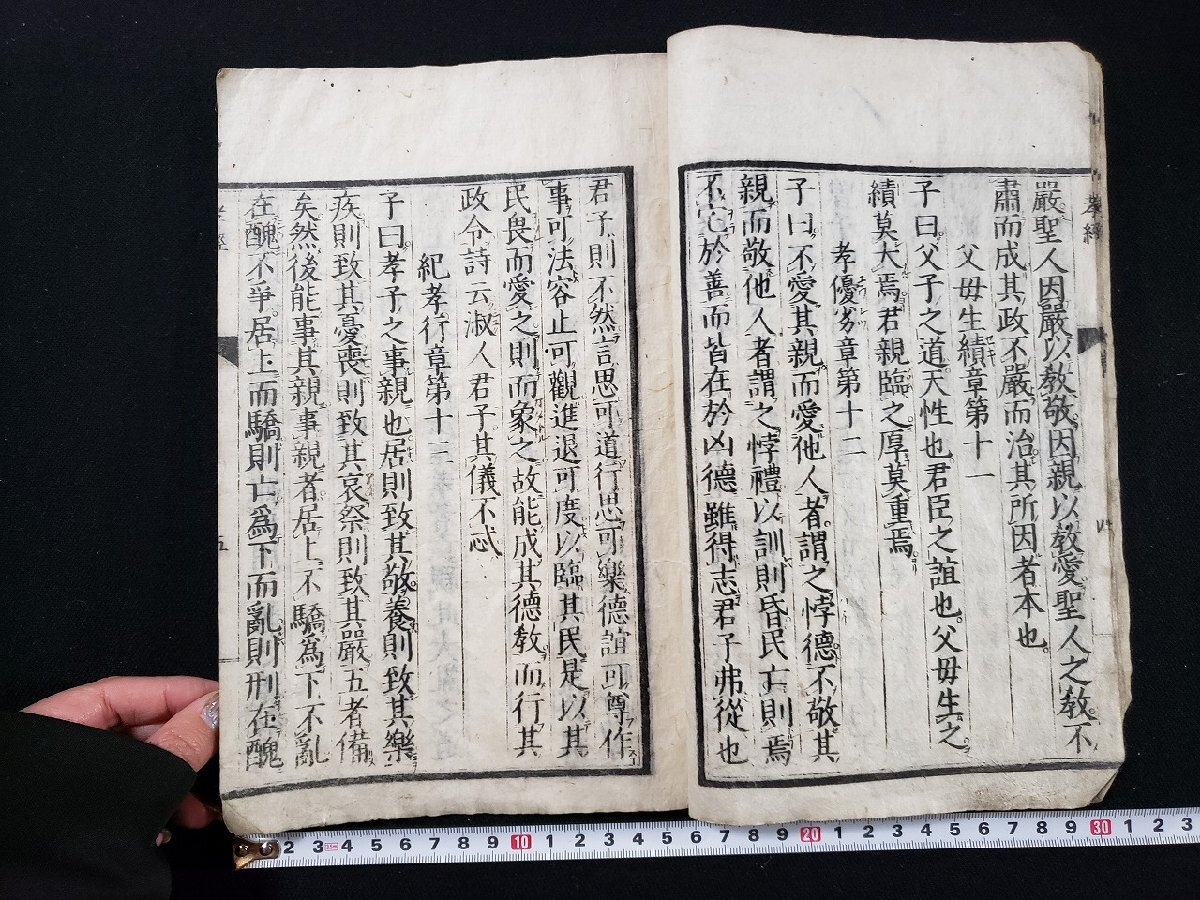 嚴聖人因嚴以敎敬因親以敎愛聖人之敎不
肅而成其政不嚴而治其所因者本也
父母生績章第十一
子曰父子之道天性也君臣之誼也父母生之
績莫大焉君親臨之厚莫重焉
孝優劣章第十二
子曰不愛其親而愛他人者謂之悖德不敬其
親而敬他人者謂之悖禮以訓則昏民亡則焉
不宅於善而皆在於凶德雖得志君子弗從也
君子則不然言思可道行思可樂德誼可尊作
事可法容止可觀進退可度以臨其民是以其
民畏而愛之則而象之故能成其德敎而行其
政令詩云淑人君子其儀不忒
紀孝行章第十三
子曰孝子之事親也居則致其敬養則致其樂
疾則致其憂喪則致其哀祭則致其嚴五者備
矣然後能事其親事親者居上不驕爲下不亂
在醜不爭居上而驕則亡爲下而亂則刑在醜
孝經
四
五
2 3 4 5 6 7 8 9 10 1 2 3 4 5 6 7 8 9 20 1 2 3 4 5 6 7 8 9 30 1 2 3